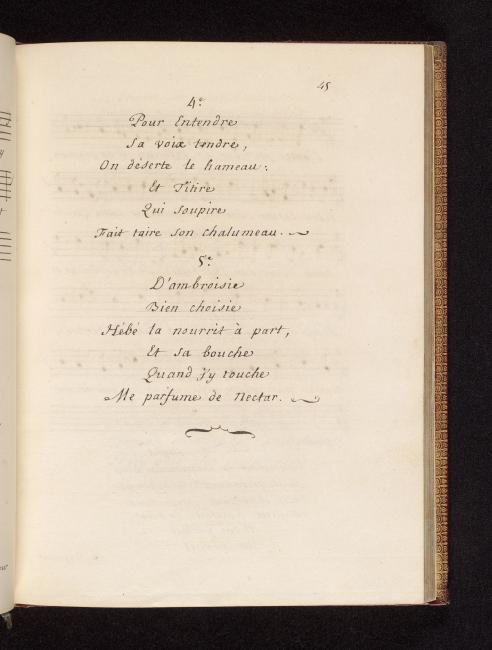 45
4.e
Pour Entendre
Sa voix tendre,
On déserte le hameau:
Et Titire
Qui soupire
Fait taire son chalumeau.
5.e
D'ambroisie
Bien choisie
Hébé la nourrit à part,
Et sa bouche
Quand j'y touche
Me parfume de Nectar.